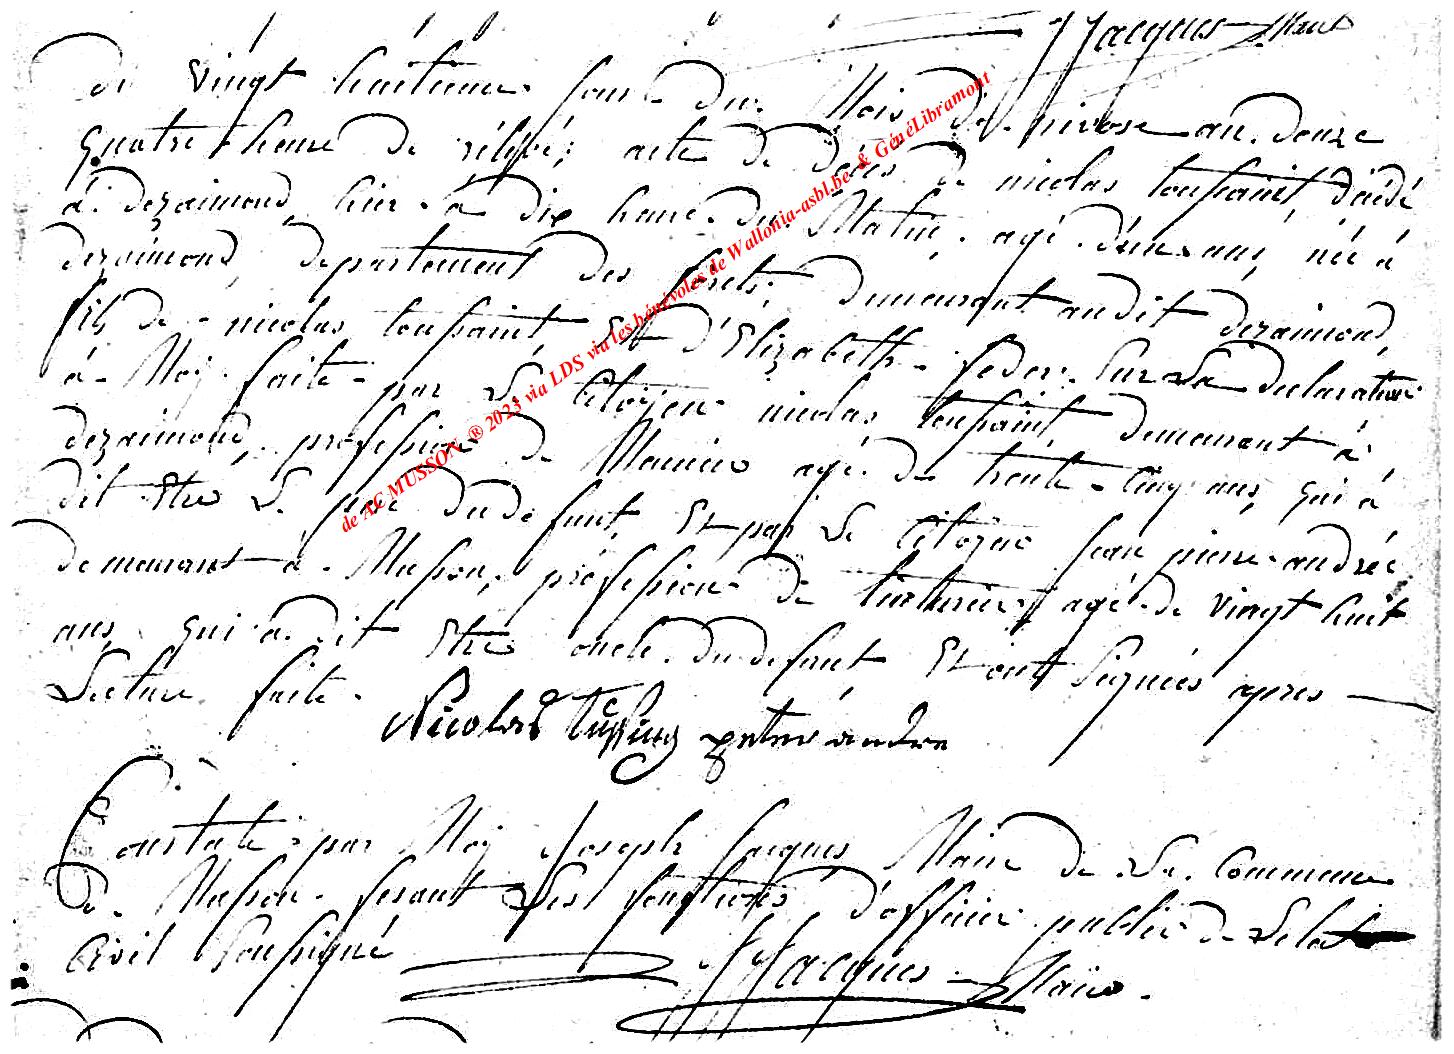 JJacques Maire
du vingt huitieme jour du Mois de nivose an douze
quatre heure de rélevé; acte de décés de nicolas toussaint, décédé
à dezaimond, hier à dix heure du Matin. agé d'un ans, née à
dezaimond, departement des forêts, demeurant au dit dezaimond,
fils de nicolas toussaint, Et d'Elizabeth feder. Sur La declaration
à Moÿ faite par Le Citoÿen nicolas toussaint, demeurant à
dezaimond, profession de agé de trente Cinq ans, qui à
dit Etre Le pere du defunt, Et par Le Citoÿen jean pierre andrée
demeurant à Musson, profession de agé de vingt huit
ans, qui à dit Etre oncle du defunt Et ont Signées apres
Lecture faite. Nicolas peter andre
Constaté par Moÿ Joseph Jacques Maire de La Commune
de Musson fesant Les fonctions d'officier public de Letat
Civil Soussigné JJacques Maire.
de AC MUSSON ® 2023 via LDS via les bénévoles de Wallonia-asbl.be & GénéLibramont